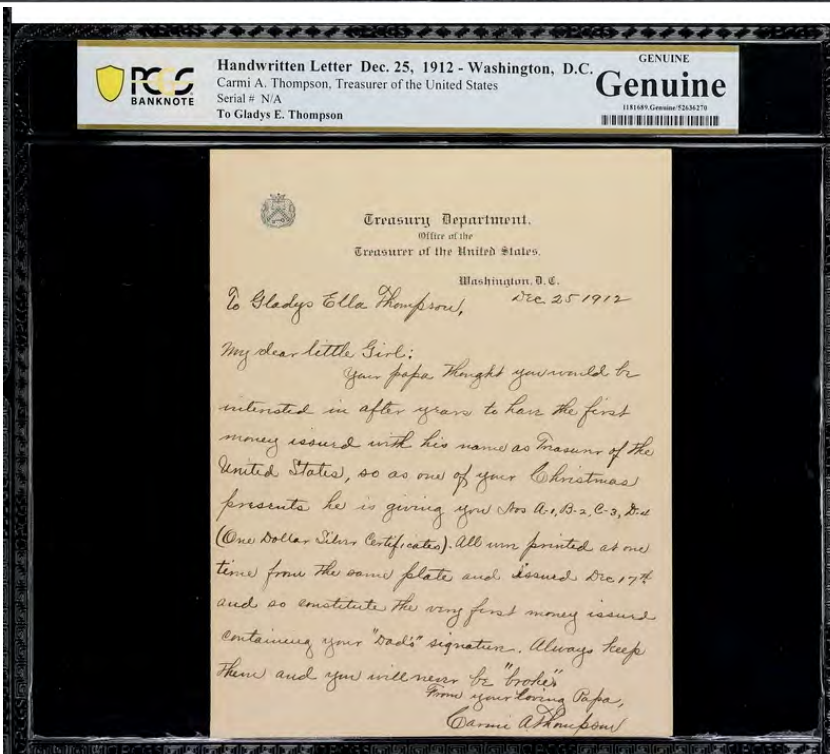 PCGS
BANKNOTE
Handwritten Letter Dec. 25, 1912 - Washington, D.C.
Carmi A. Thompson, Treasurer of the United States
Serial # N/A
To Gladys E. Thompson
GENUINE
Genuine
1181689.Genuine/52636270
Treasury Department.
Office of the
Treasurer of the United States.
Washington, D.C.
Dec. 25 1912
To Gladys Ella Thompson,
My dear little Girl:
Your papa thought you would be
interested in after years to have the first
money issued with his name as Treasurer of the
United States, so as one of your Christmas
presents he is giving you Nos A-1, B-2, C-3, D-4
(One Dollar Silver Certificates). All were printed at one
time from the same plate and issued Dec 17th
and so constitute the very first money issued
containing your "Dad's" signature. Always keep
them and you will never be "broke".
From your loving Papa,
Carmi A Thompson